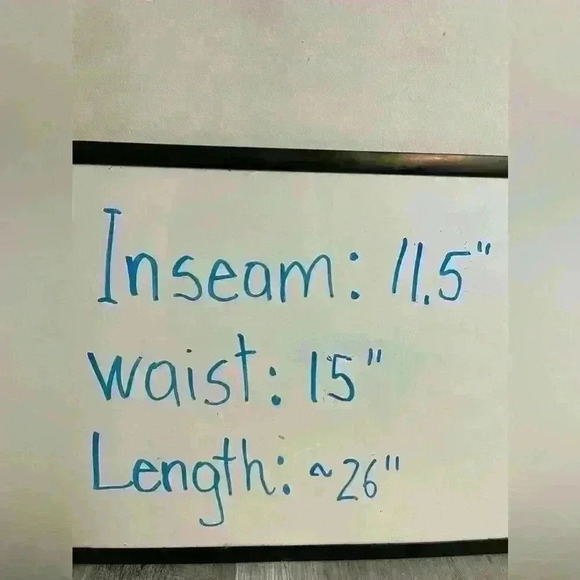 Inseam: 11.5"
waist: 15"
Length: ~26"